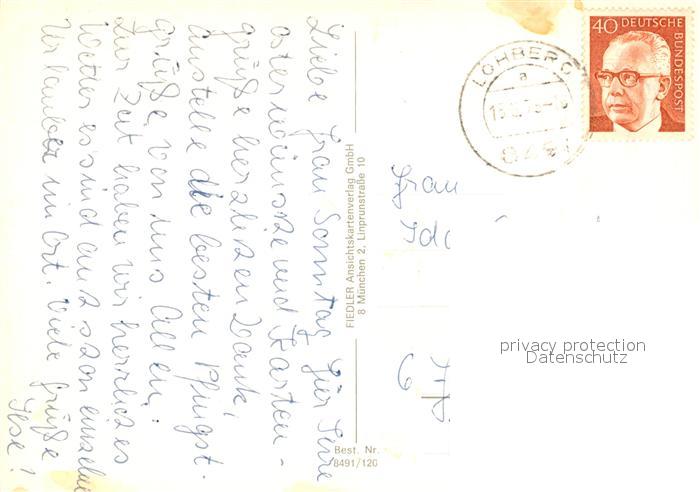 Liebe Frau Sonntag, für Ihre
osterwünsche und Karten-
grüße herzlichen Dank!
Anstelle die besten Pfingst.
grüße von uns Allen!
Zur Zeit haben wir herrliches
Wetter es sind auch schon einzelne
Urlauber im Ort. Viele Grüße
Ilse!
FIEDLER Ansichtskartenverlag GmbH
8 München 2, Linprunstraße 10
Best. Nr.
8491/120
40 DEUTSCHE
BUNDESPOST
LOHBERG
a
Frau
6
privacy protection
Datenschutz